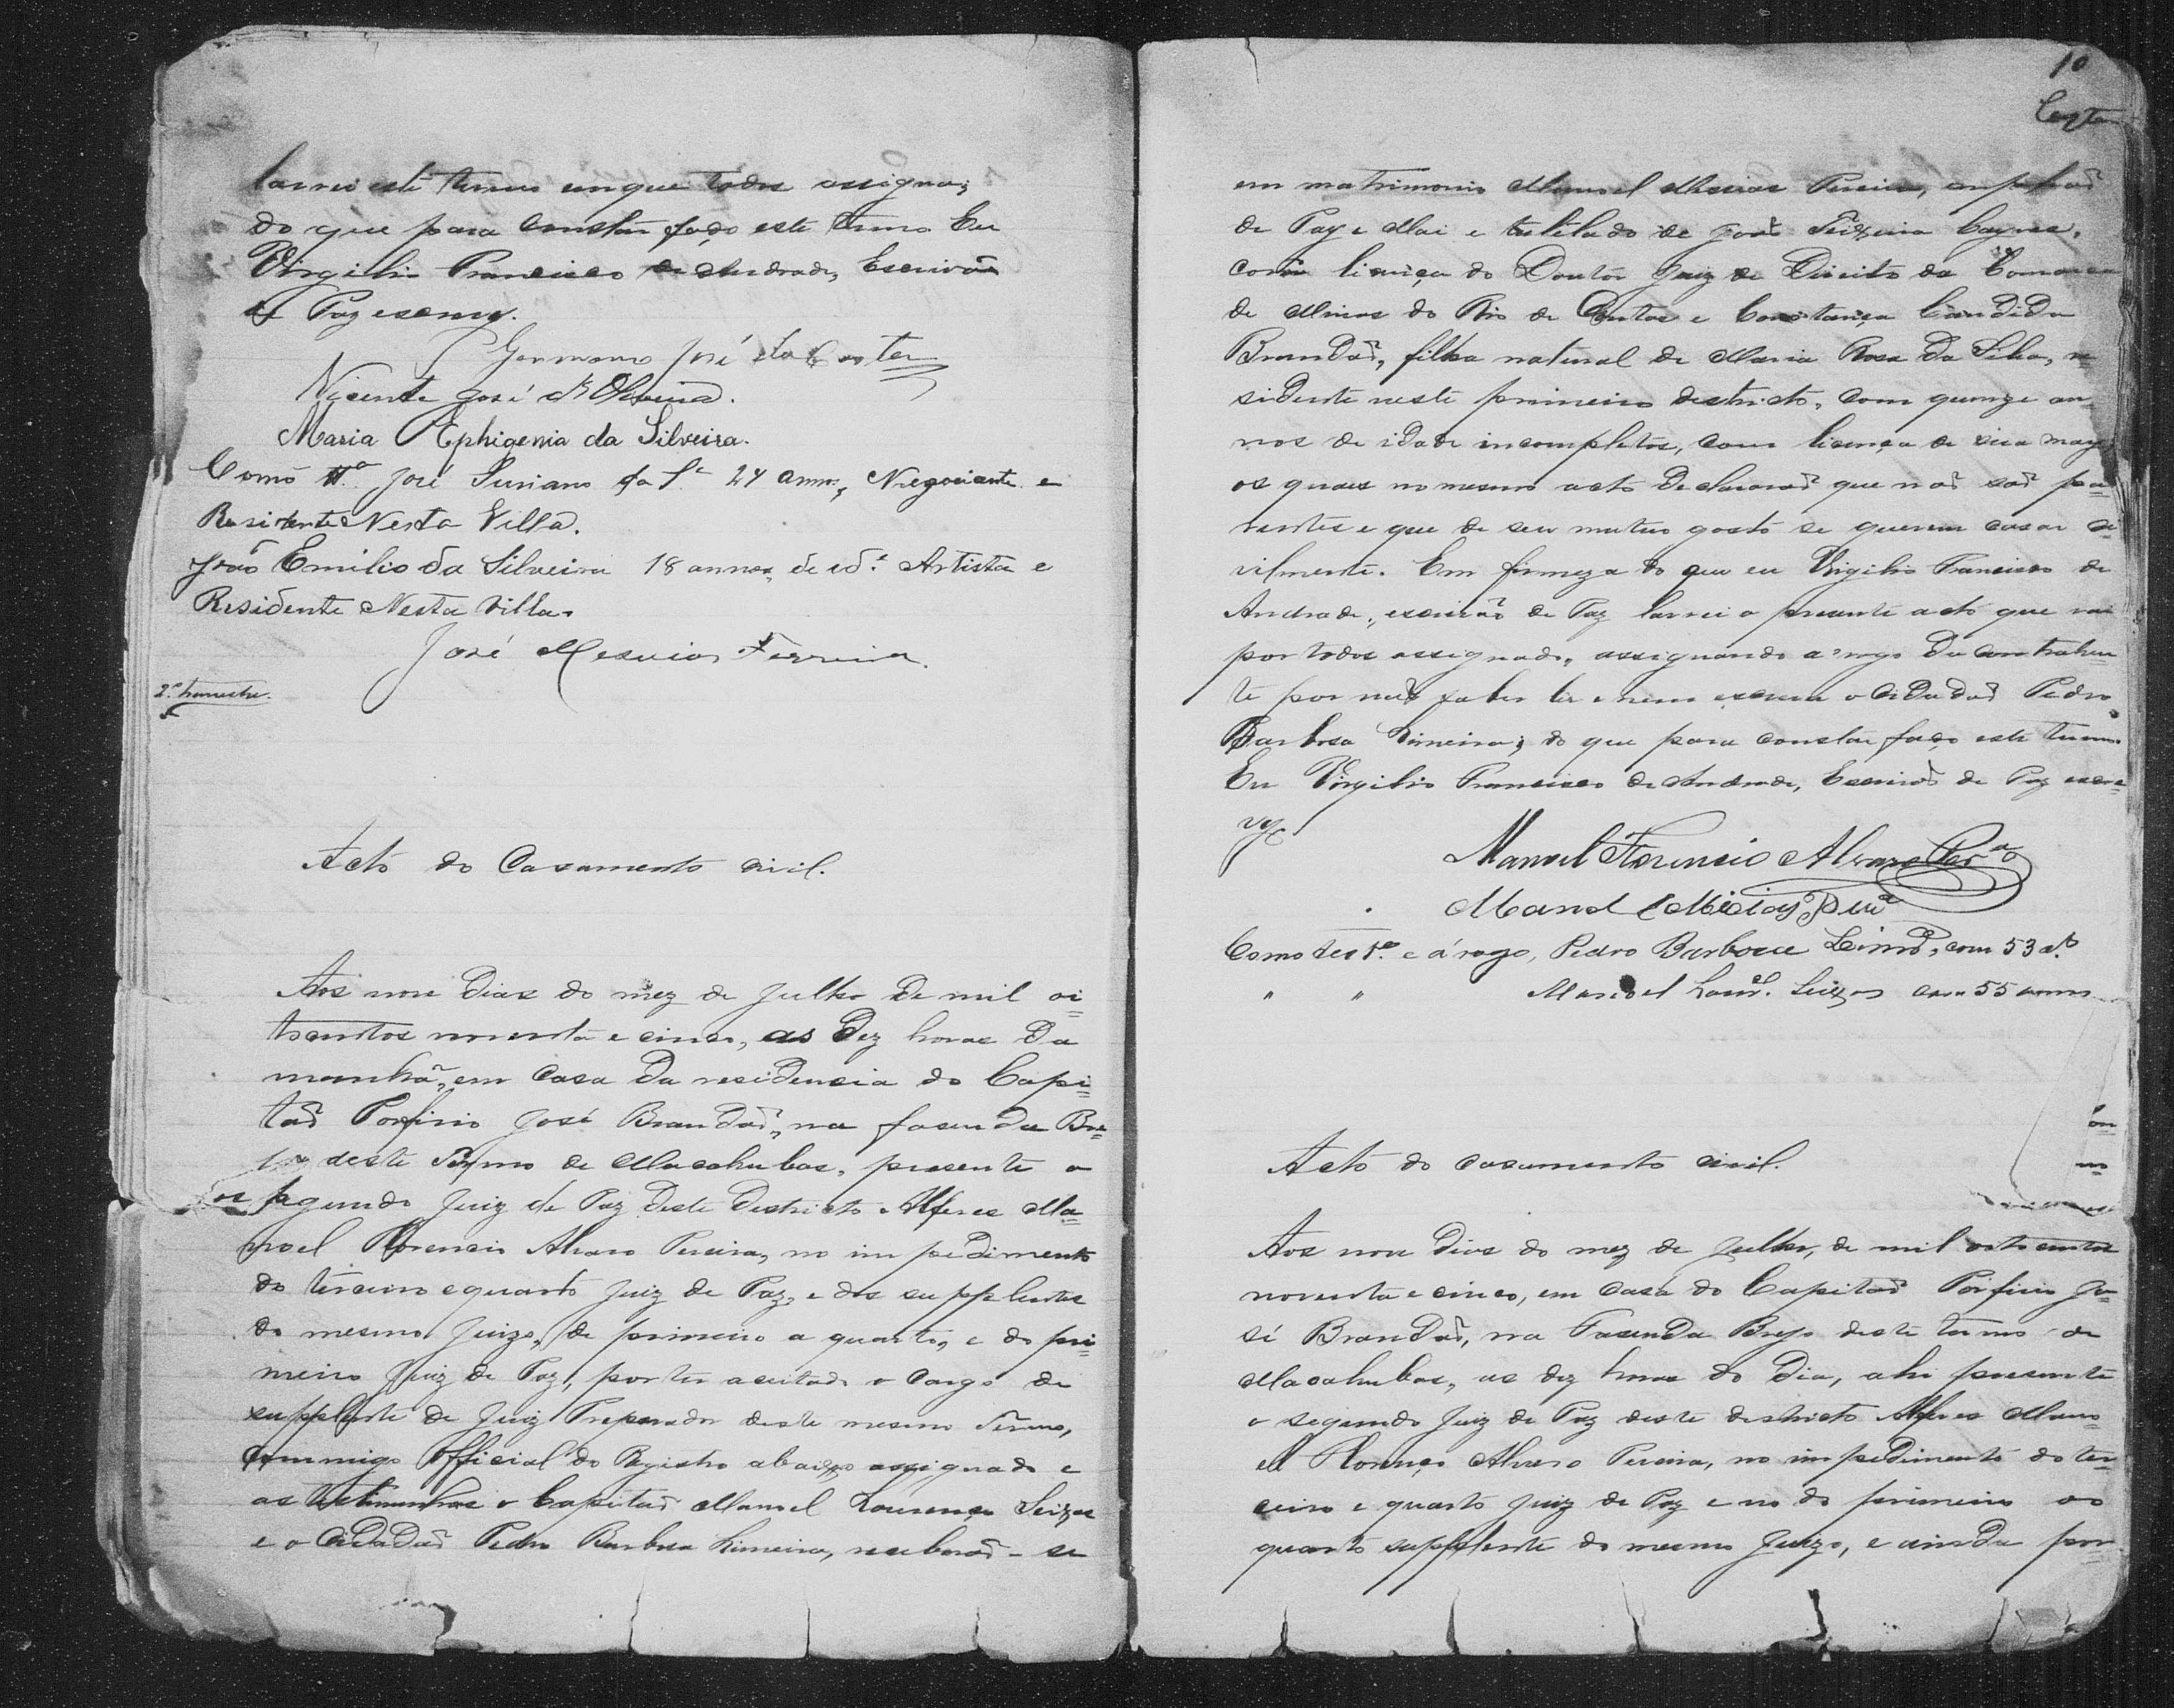 lavrei este termo em que todos assigna;
do que para constar faço este termo Eu
Virgilio Francisco de Andrade, Escrivão
de Paz escrevy.
Germano José da Costa
Vicente José de Oliveira.
Maria Ephigenia da Silveira.
Como José da Sª 24 annos, Negociante e
Residente Nesta Villa.
João Emilio da Silveira 18 annos, de idº Artista e
Residente Nesta Villa.
José Messias Ferreira.
2º trimestre.
Acto do Casamento civil.
Aos nove dias do mez de Julho de mil oi=
tocentos noventa e cinco, as dez horas da
manhã, em Casa da residencia do Capi=
tão Porfirio José Brandão, na fasenda Bre=
jo deste Termo de Macahubas, presente o
segundo Juiz de Paz deste Districto Alferes Ma=
noel Florencio Alvaro Pereira, no impedimento
do terceiro e quarto Juiz de Paz, e dos supplentes
do mesmo Juizo, de primeiro a quarto, e do pri=
meiro Juiz de Paz, por ter aceitado o cargo de
supplente de Juiz Preparador deste mesmo Termo,
commigo Official do Registro abaixo assignado e
as testimunhas o Capitão Manoel Lourenço Seixas
e o Cidadão Pedro Barbosa Limeira, receberão-se
10
em matrimonio Manoel Messias Pereira, orphão
de Pay e Mai e tutelado de José Teixeira
com licença do Doutor Juiz de Direito da Comarca
de Minas do Rio de Contas e Constança Candida
Brandão, filha natural de Maria Rosa da Silva, re=
sidente neste primeiro districto, com quinze an=
nos de idade incompletos, com licença de sua may
os quaes no mesmo acto declararão que não são pa=
rentes e que de seu mutuo gosto se querem casar ci=
vilmente. Em firmeza do que eu Virgilio Francisco de
Andrade, escrivão de Paz lavrei o presente acto que vai
por todos assignado, assignando a rogo da contrahen
te por não saber ler e nem escrever o Cidadão Pedro
Barbosa Limeira; do que para constar faço este termo
Eu Virgilio Francisco de Andrade, Escrivão de Paz escre=
vy.
Manoel Florencio Alvaro Perª
Manoel Micias Perª
Como testª e á rogo, Pedro Barbosa Limrª, com 53 aº
" " Manoel Lourº. Seixas com 55 annos
Acto do casamento civil.
Aos nove dias do mez de Julho, de mil oitocentos
noventa e cinco, em casa do Capitão Porfirio Jo=
sé Brandão, na Fasenda Brejo deste termo de
Macahubas, as dez horas do dia, ahi presente
o segundo Juiz de Paz deste districto Alferes Mano=
el Florenço Alvaro Pereira, no impedimento do ter=
ceiro e quarto Juiz de Paz e no do primeiro ao
quarto supplente do mesmo Juizo, e ainda por